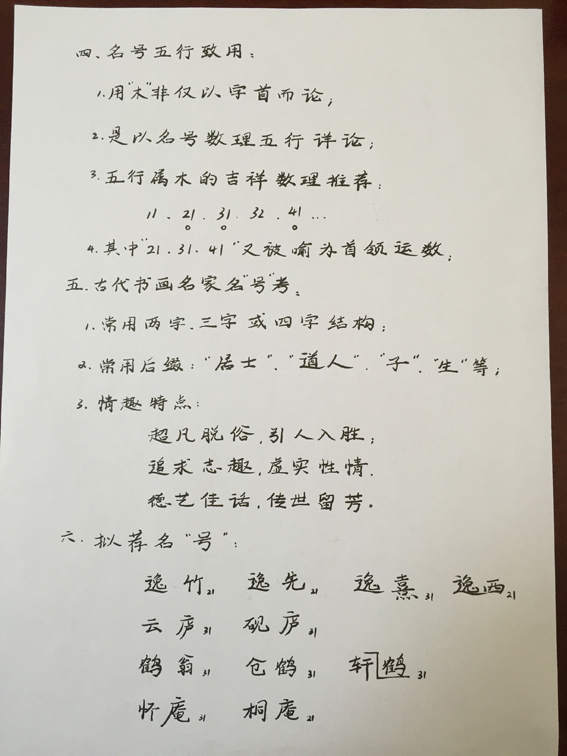 四、名号五行致用：
1.用“木”非仅以字首而论；
2.是以名号数理五行详论；
3.五行属木的吉祥数理推荐：
11、21、31、32、41...
4.其中“21、31、41”又被喻为首领运数；
五、古代书画名家名“号”考。
1.常用两字、三字或四字结构；
2.常用后缀：“居士”、“道人”、“子”、“生”等；
3.情趣特点：
超凡脱俗，引人入胜；
追求志趣，虚实性情.
德艺佳话，传世留芳。
六、拟荐名“号”：
逸竹21 逸先21 逸熹31 逸西21
云庐31 砚庐31
鹤翁31 仓鹤31 轩鹤31
怀庵31 桐庵21